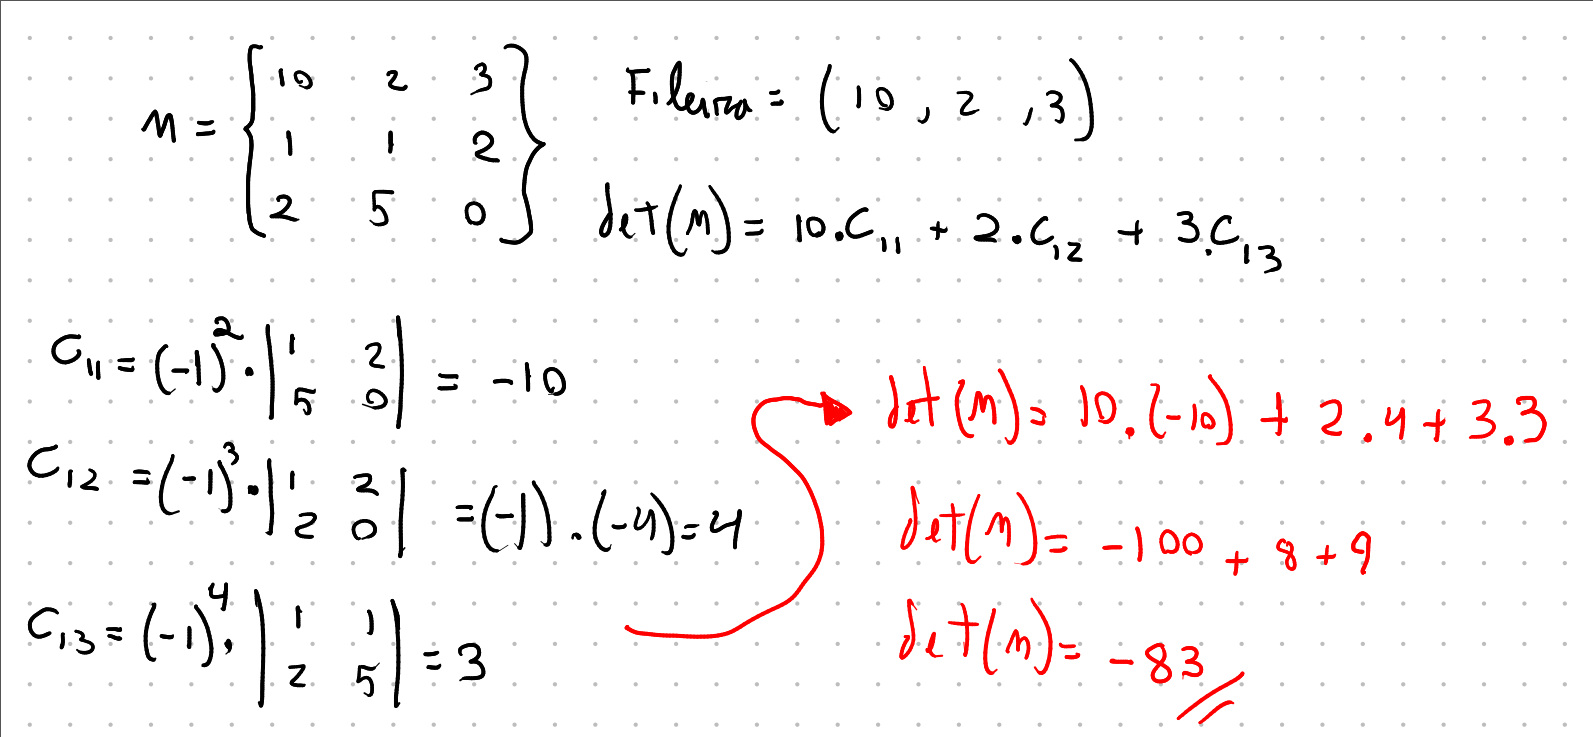 M = { 10 2 3
1 1 2
2 5 0 }
Fileira = (10, 2, 3)
det(M) = 10.C₁₁ + 2.C₁₂ + 3.C₁₃
C₁₁ = (-1)². | 1 2
5 0 | = -10
C₁₂ = (-1)³. | 1 2
2 0 | = (-1).(-4) = 4
C₁₃ = (-1)⁴. | 1 1
2 5 | = 3
det(M) = 10.(-10) + 2.4 + 3.3
det(M) = -100 + 8 + 9
det(M) = -83